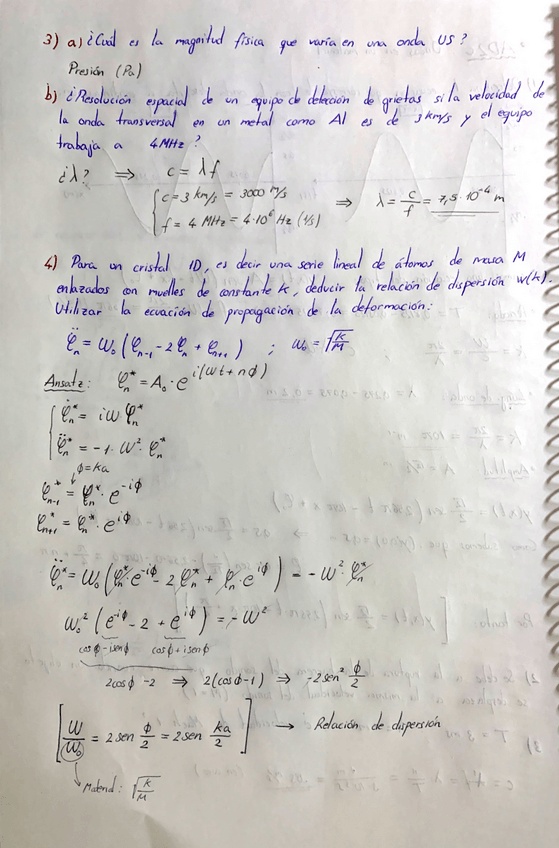 3) a) ¿Cuál es la magnitud física que varía en una onda US?
Presión (Pa)
b) ¿Resolución espacial de un equipo de deteción de grietas si la velocidad de
la onda transversal en un metal como Al es de 3 km/s y el equipo
trabaja a 4 MHz?
¿λ? ⇒ c = λ f
{ c = 3 km/s = 3000 m/s ⇒ λ = c/f = 7,5·10⁻⁴ m
f = 4 MHz = 4·10⁶ Hz (1/s)
4) Para un cristal 1D, es decir una serie lineal de átomos de masa M
enlazados con muelles de constante k, deducir la relación de dispersión w(k).
Utilizar la ecuación de propagación de la deformación:
φ̈ₙ = W₀ (φₙ₋₁ - 2φₙ + φₙ₊₁) ; W₀ = √(K/M)
Ansatz: φₙ* = A₀ · e^{i(wt + nϕ)}
{ φ̇ₙ* = iW φₙ*
φ̈ₙ* = -1· W² · φₙ*
ϕ = ka
φₙ₋₁* = φₙ* · e^{-iϕ}
φₙ₊₁* = φₙ* · e^{iϕ}
φ̈ₙ* = W₀ (φₙ* e^{-iϕ} - 2 φₙ* + φₙ e^{iϕ}) = - W² · φₙ*
W₀² (e^{-iϕ} - 2 + e^{iϕ}) = - W²
cosϕ - isenϕ cosϕ + isenϕ
2cosϕ - 2 ⇒ 2(cosϕ - 1) ⇒ -2sen² ϕ/2
[ W/W₀ = 2 sen ϕ/2 = 2 sen ka/2 ] → Relación de dispersión
Material: √(K/M)